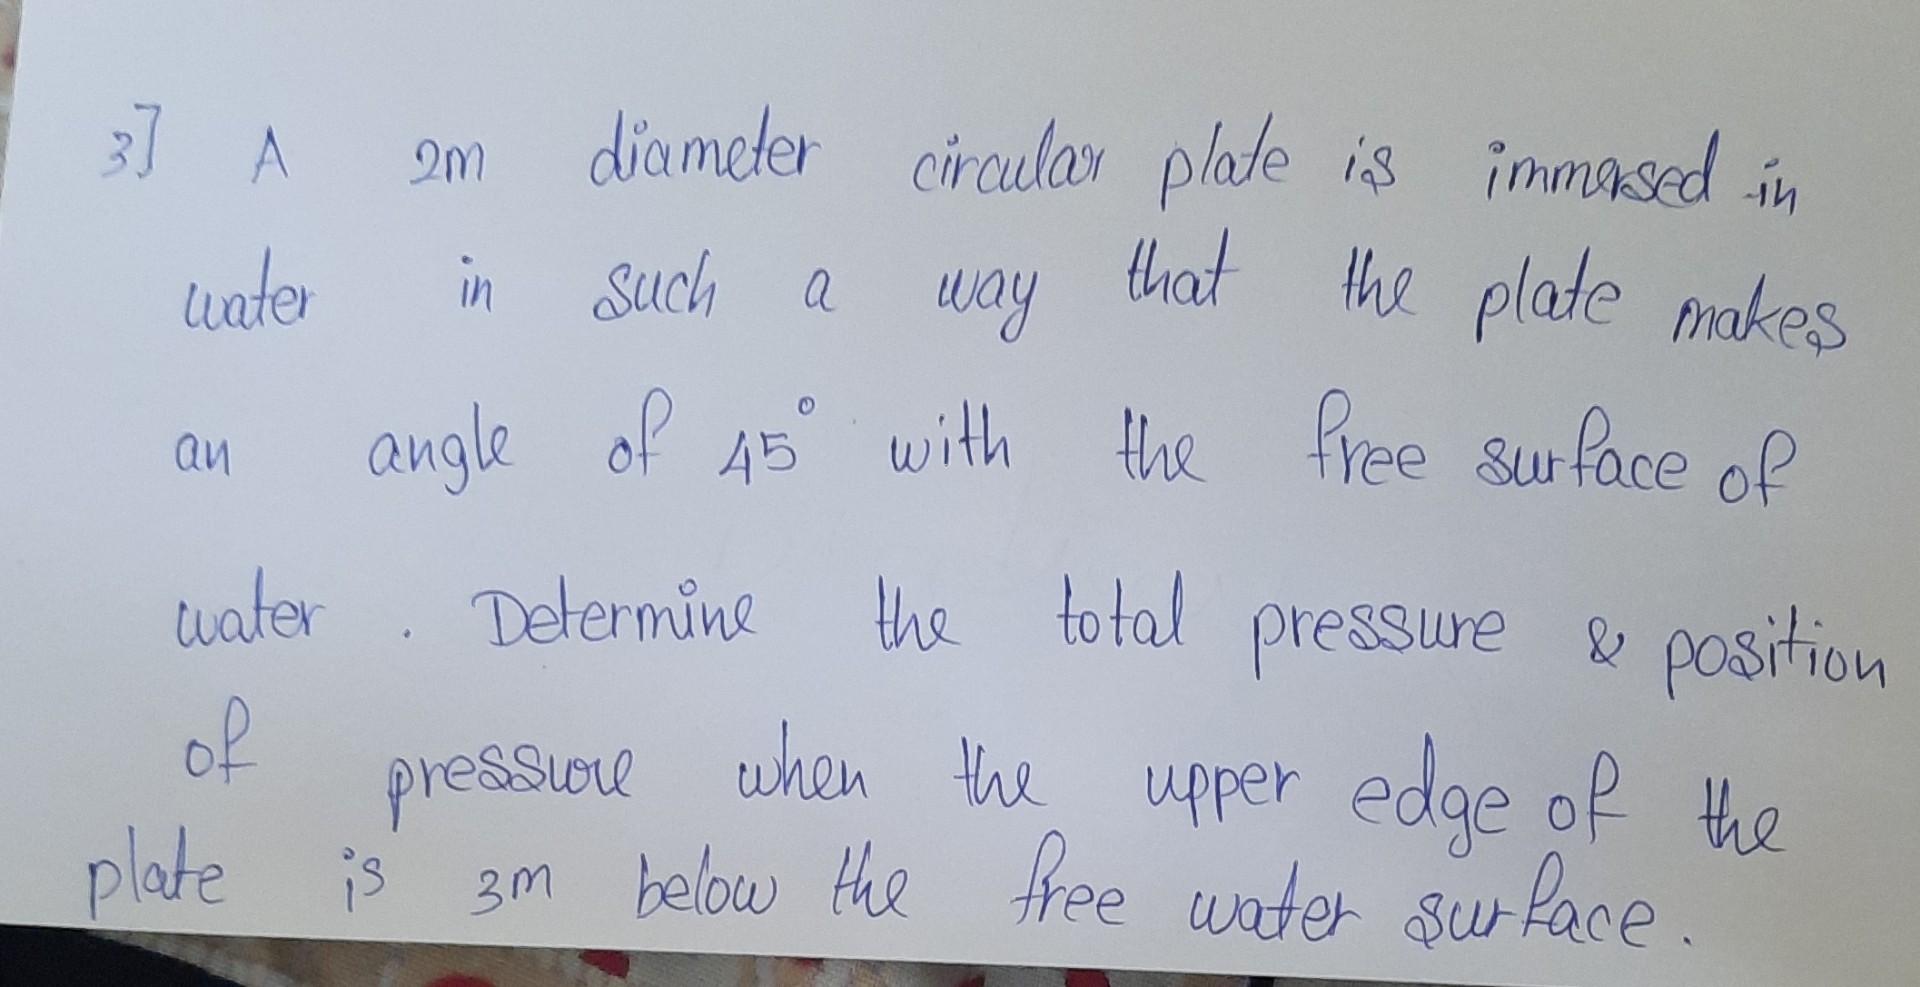 3] A 2m diameter circular plate is immersed in
water in such a way that the plate makes
an angle of 45° with the free surface of
water. Determine the total pressure & position
of pressure when the upper edge of the
plate is 3m below the free water surface.